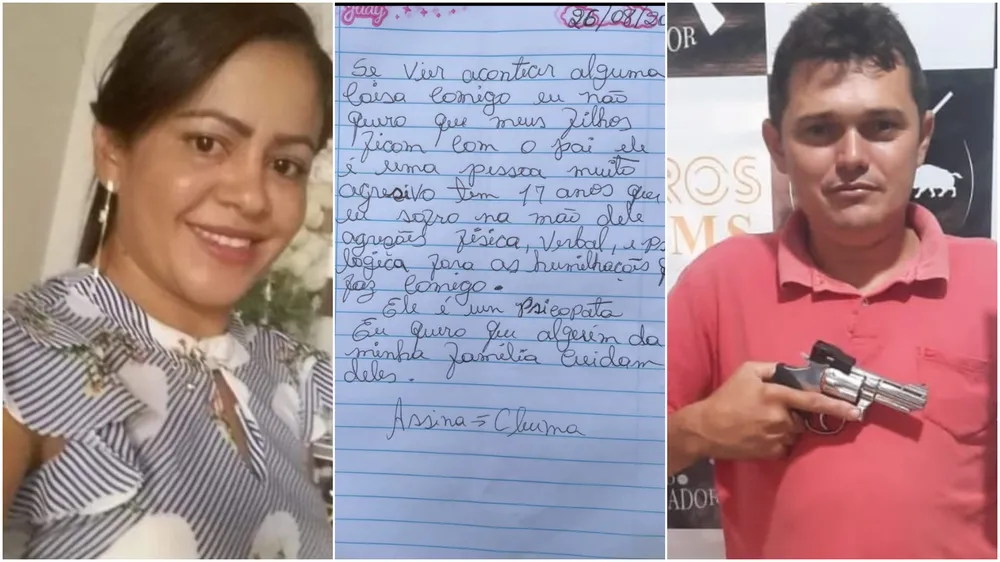 Judy
26/08/20
Se vier acontecer alguma
Coisa Comigo eu não
quero que meus filhos
ficam com o pai ele
é uma pessoa muito
agresivo tem 17 anos que
eu sofro na mão dele
agreções física, verbal, e ps
lógica fora as humilhações q
faz Comigo.
Ele é um psicopata
Eu quero que alguém da
minha família Cuidam
deles.
Assina = Cleuma
OR
ROS
MS
ADOR